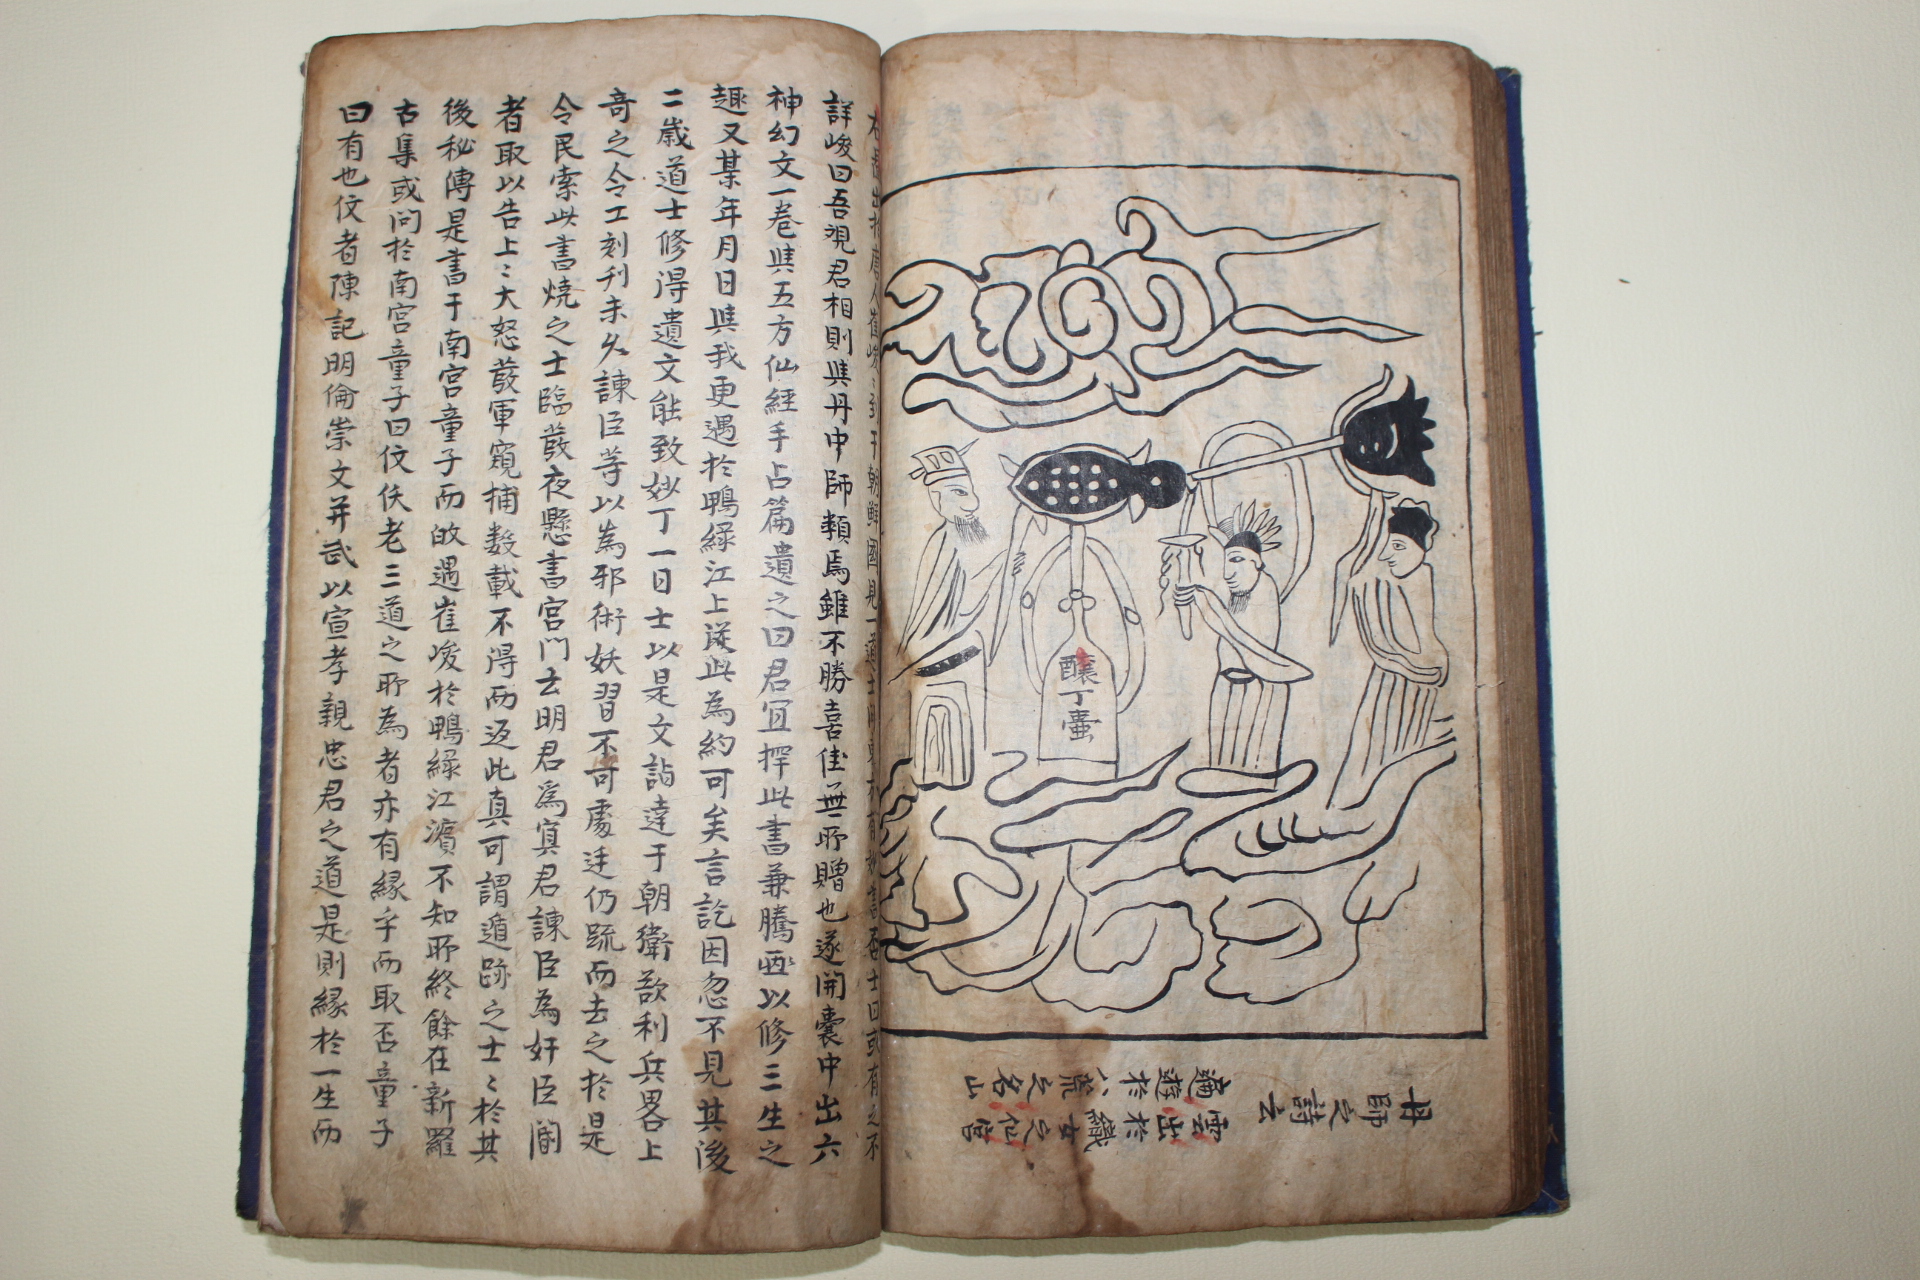 丹師之詩云
雲出於織女之仙宮
遊於八荒之名山
釀丁壷
詳峻曰吾視君相則與丹中師類焉雖不勝喜佳無所贈也遂開囊中出六
神幻文一卷與五方仙經手占篇遺之曰君宜擇此書兼騰以修三生之
趣又某年月日與我更遇於鴨綠江上從此為約可矣言訖因忽不見其後
二歲道士修得遺文能致妙丁一日士以是文詣達于朝衛欲利兵畧上
竒之令工刻刋未久諫臣等以為邪術妖習不可處迋仍䟽而去之於是
令民索此書燒之士臨發夜懸書宮門去明君為寘君諫臣為奸臣闇
者取以告上〻大怒發軍窺捕数載不得而返此真可謂遁跡之士〻於其
後秘傳是書于南宮童子而故遇崔峻於鴨綠江濵不知所終餘在新羅
古集或问於南宮童子曰伩佚老三道之所為者亦有緣乎而取否童子
曰有也伩者陳記明倫崇文并武以宣孝親忠君之道是則緣於一生而